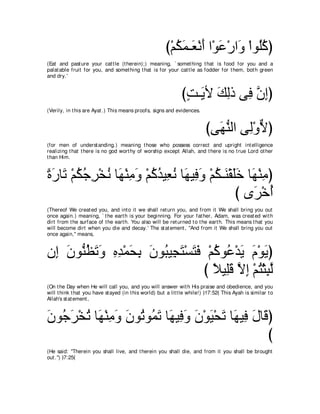 (كُلُواْ وَارْعَوْا أَنْعَـمَكُمْ)
(Eat and pasture your cattle (therein);) meaning, `something that is food for you and a palatable fruit for you, and something that is for your cattle as fodder for them, both green and dry.'
(إِنَّ فِى ذَلِكَ لأَيَـتٍ)
(Verily, in this are Ayat.) This means proofs, signs and evidences.
(لاٌّوْلِى النُّهَى)
(for men of understanding.) meaning those who possess correct and upright intelligence realizing that there is no god worthy of worship except Allah, and there is no true Lord other than Him.
(مِنْهَا خَلَقْنَـكُمْ وَفِيهَا نُعِيدُكُمْ وَمِنْهَا نُخْرِجُكُمْ تَارَةً
أُخْرَى )
(Thereof We created you, and into it we shall return you, and from it We shall bring you out once again.) meaning, `the earth is your beginning. For your father, Adam, was created with dirt from the surface of the earth. You also will be returned to the earth. This means that you will become dirt when you die and decay.' The statement, "And from it We shall bring you out once again," means,
(يَوْمَ يَدْعُوكُمْ فَتَسْتَجِيبُونَ بِحَمْدِهِ وَتَظُنُّونَ إِن
لَّبِثْتُمْ إِلاَّ قَلِيلاً )
(On the Day when He will call you, and you will answer with His praise and obedience, and you will think that you have stayed (in this world) but a little while!) (17:52) This Ayah is similar to Allah's statement,
(قَالَ فِيهَا تَحْيَوْنَ وَفِيهَا تَمُوتُونَ وَمِنْهَا تُخْرَجُونَ
)
(He said: "Therein you shall live, and therein you shall die, and from it you shall be brought out.") )7:25(